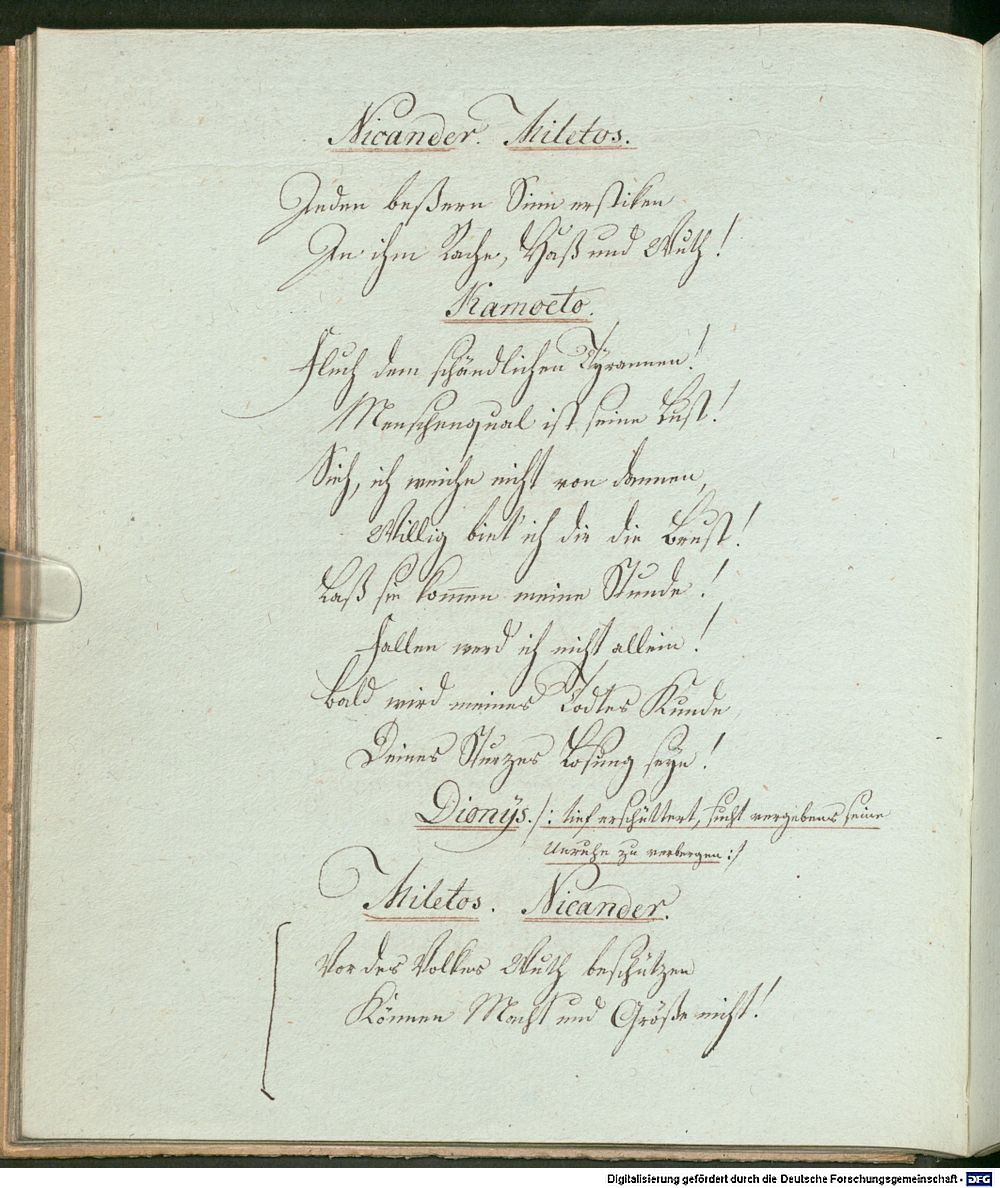 Nicander. Miletos.
Jeden beßern Sinn erstiken
In ihm Rache, Haß und Wuth!
Kamoeto.
Fluch dem schändlichen Tyrannen!
Menschenqual ist seine Lust!
Sieh, ich weiche nicht von dannen,
Willig biet' ich dir die Brust!
Laß sie kom̄en meine Stunde!
Fallen werd ich nicht allein!
Bald wird meines Todtes Kunde
Deines Sturzes Losung seyn!
Dionÿs. /: tief erschüttert, sucht vergebens seine
Unruhe zu verbergen :/
Miletos. Nicander.
Vor des Volkes Wuth beschützen
Können Macht und Größe nicht!
Digitalisierung gefördert durch die Deutsche Forschungsgemeinschaft - DFG